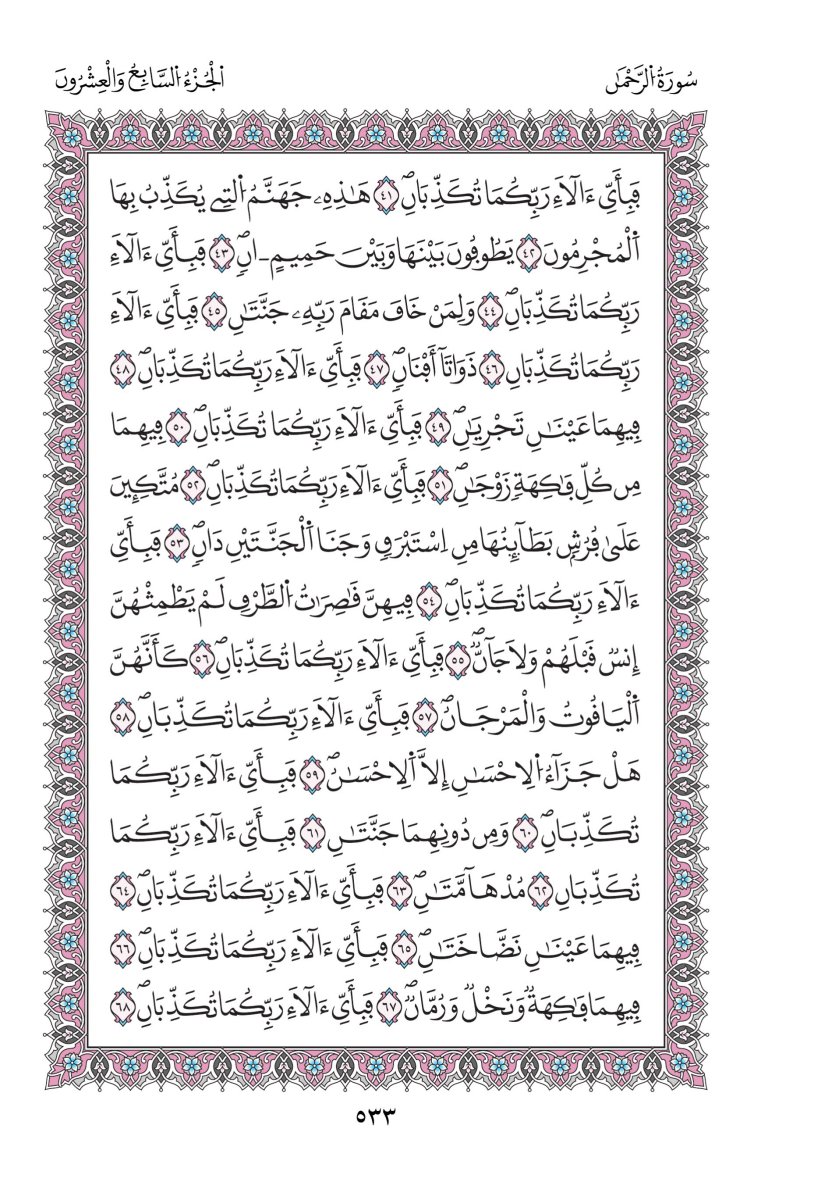 سُورَةُ اُلرَّحْمَٰن
اُلْجُزْءُ اُلسَّابِعُ وَالْعِشْرُونَ
فَبِأَيِّ ءَالَآءِ رَبِّكُمَا تُكَذِّبَانِۖ ٤١ هَٰذِهِۦ جَهَنَّمُ اُلتِے يُكَذِّبُ بِهَا
اَ۬لْمُجْرِمُونَ ٤٢ يَطُوفُونَ بَيْنَهَا وَبَيْنَ حَمِيمٍ ـ انٖۖ ٤٣ فَبِأَيِّ ءَالَآءِ
رَبِّكُمَا تُكَذِّبَانِۖ ٤٤ وَلِمَنْ خَافَ مَقَامَ رَبِّهِۦ جَنَّتَٰنِ ٤٥ فَبِأَيِّ ءَالَآءِ
رَبِّكُمَا تُكَذِّبَانِ ٤٦ ذَوَاتَآ أَفْنَانٖۖ ٤٧ فَبِأَيِّ ءَالَآءِ رَبِّكُمَا تُكَذِّبَانِۖ ٤٨
فِيهِمَا عَيْنَٰنِ تَجْرِيَٰنِۖ ٤٩ فَبِأَيِّ ءَالَآءِ رَبِّكُمَا تُكَذِّبَانِۖ ٥٠ فِيهِمَا
مِن كُلِّ فَٰكِهَةٖ زَوْجَٰنِۖ ٥١ فَبِأَيِّ ءَالَآءِ رَبِّكُمَا تُكَذِّبَانِۖ ٥٢ مُتَّكِـِٕينَ
عَلَىٰ فُرُشِۢ بَطَآئِنُهَا مِنِ اِسْتَبْرَقٖ وَجَنَا اَ۬لْجَنَّتَيْنِ دَانٖۖ ٥٣ فَبِأَيِّ
ءَالَآءِ رَبِّكُمَا تُكَذِّبَانِۖ ٥٤ فِيهِنَّ قَٰصِرَٰتُ اُ۬لطَّرْفِ لَمْ يَطْمِثْهُنَّ
إِنسٞ قَبْلَهُمْ وَلَا جَآنّٞۖ ٥٥ فَبِأَيِّ ءَالَآءِ رَبِّكُمَا تُكَذِّبَانِۖ ٥٦ كَأَنَّهُنَّ
اَ۬لْيَاقُوتُ وَالْمَرْجَانُۖ ٥٧ فَبِأَيِّ ءَالَآءِ رَبِّكُمَا تُكَذِّبَانِۖ ٥٨
هَلْ جَزَآءُ اُ۬لِاحْسَٰنِ إِلَّا اَ۬لِاحْسَٰنُۖ ٥٩ فَبِأَيِّ ءَالَآءِ رَبِّكُمَا
تُكَذِّبَانِۖ ٦٠ وَمِن دُونِهِمَا جَنَّتَٰنِ ٦١ فَبِأَيِّ ءَالَآءِ رَبِّكُمَا
تُكَذِّبَانِ ٦٢ مُدْهَآمَّتَٰنِۖ ٦٣ فَبِأَيِّ ءَالَآءِ رَبِّكُمَا تُكَذِّبَانِۖ ٦٤
فِيهِمَا عَيْنَٰنِ نَضَّاخَتَٰنِۖ ٦٥ فَبِأَيِّ ءَالَآءِ رَبِّكُمَا تُكَذِّبَانِۖ ٦٦
فِيهِمَا فَٰكِهَةٞ وَنَخْلٞ وَرُمَّانٞۖ ٦٧ فَبِأَيِّ ءَالَآءِ رَبِّكُمَا تُكَذِّبَانِۖ ٦٨
٥٣٣